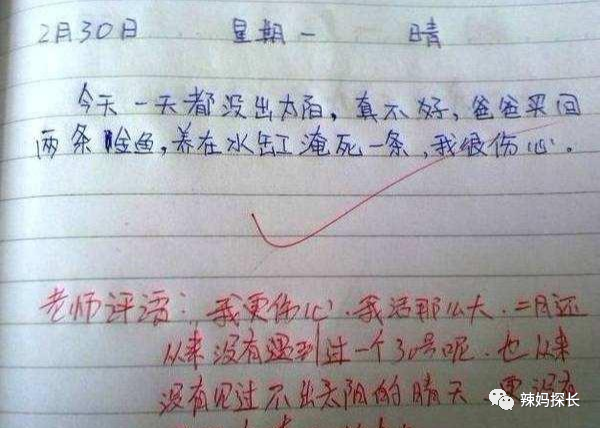 2月30日 星期一 晴
今天一天都没出太阳，真不好，爸爸买回
两条金鱼，养在水缸淹死一条，我很伤心．
老师评语：我更伤心．我活那么大．二月还
从来没有遇到过一个30号呢．也从来
没有见过不出太阳的晴天 更没有
辣妈探长